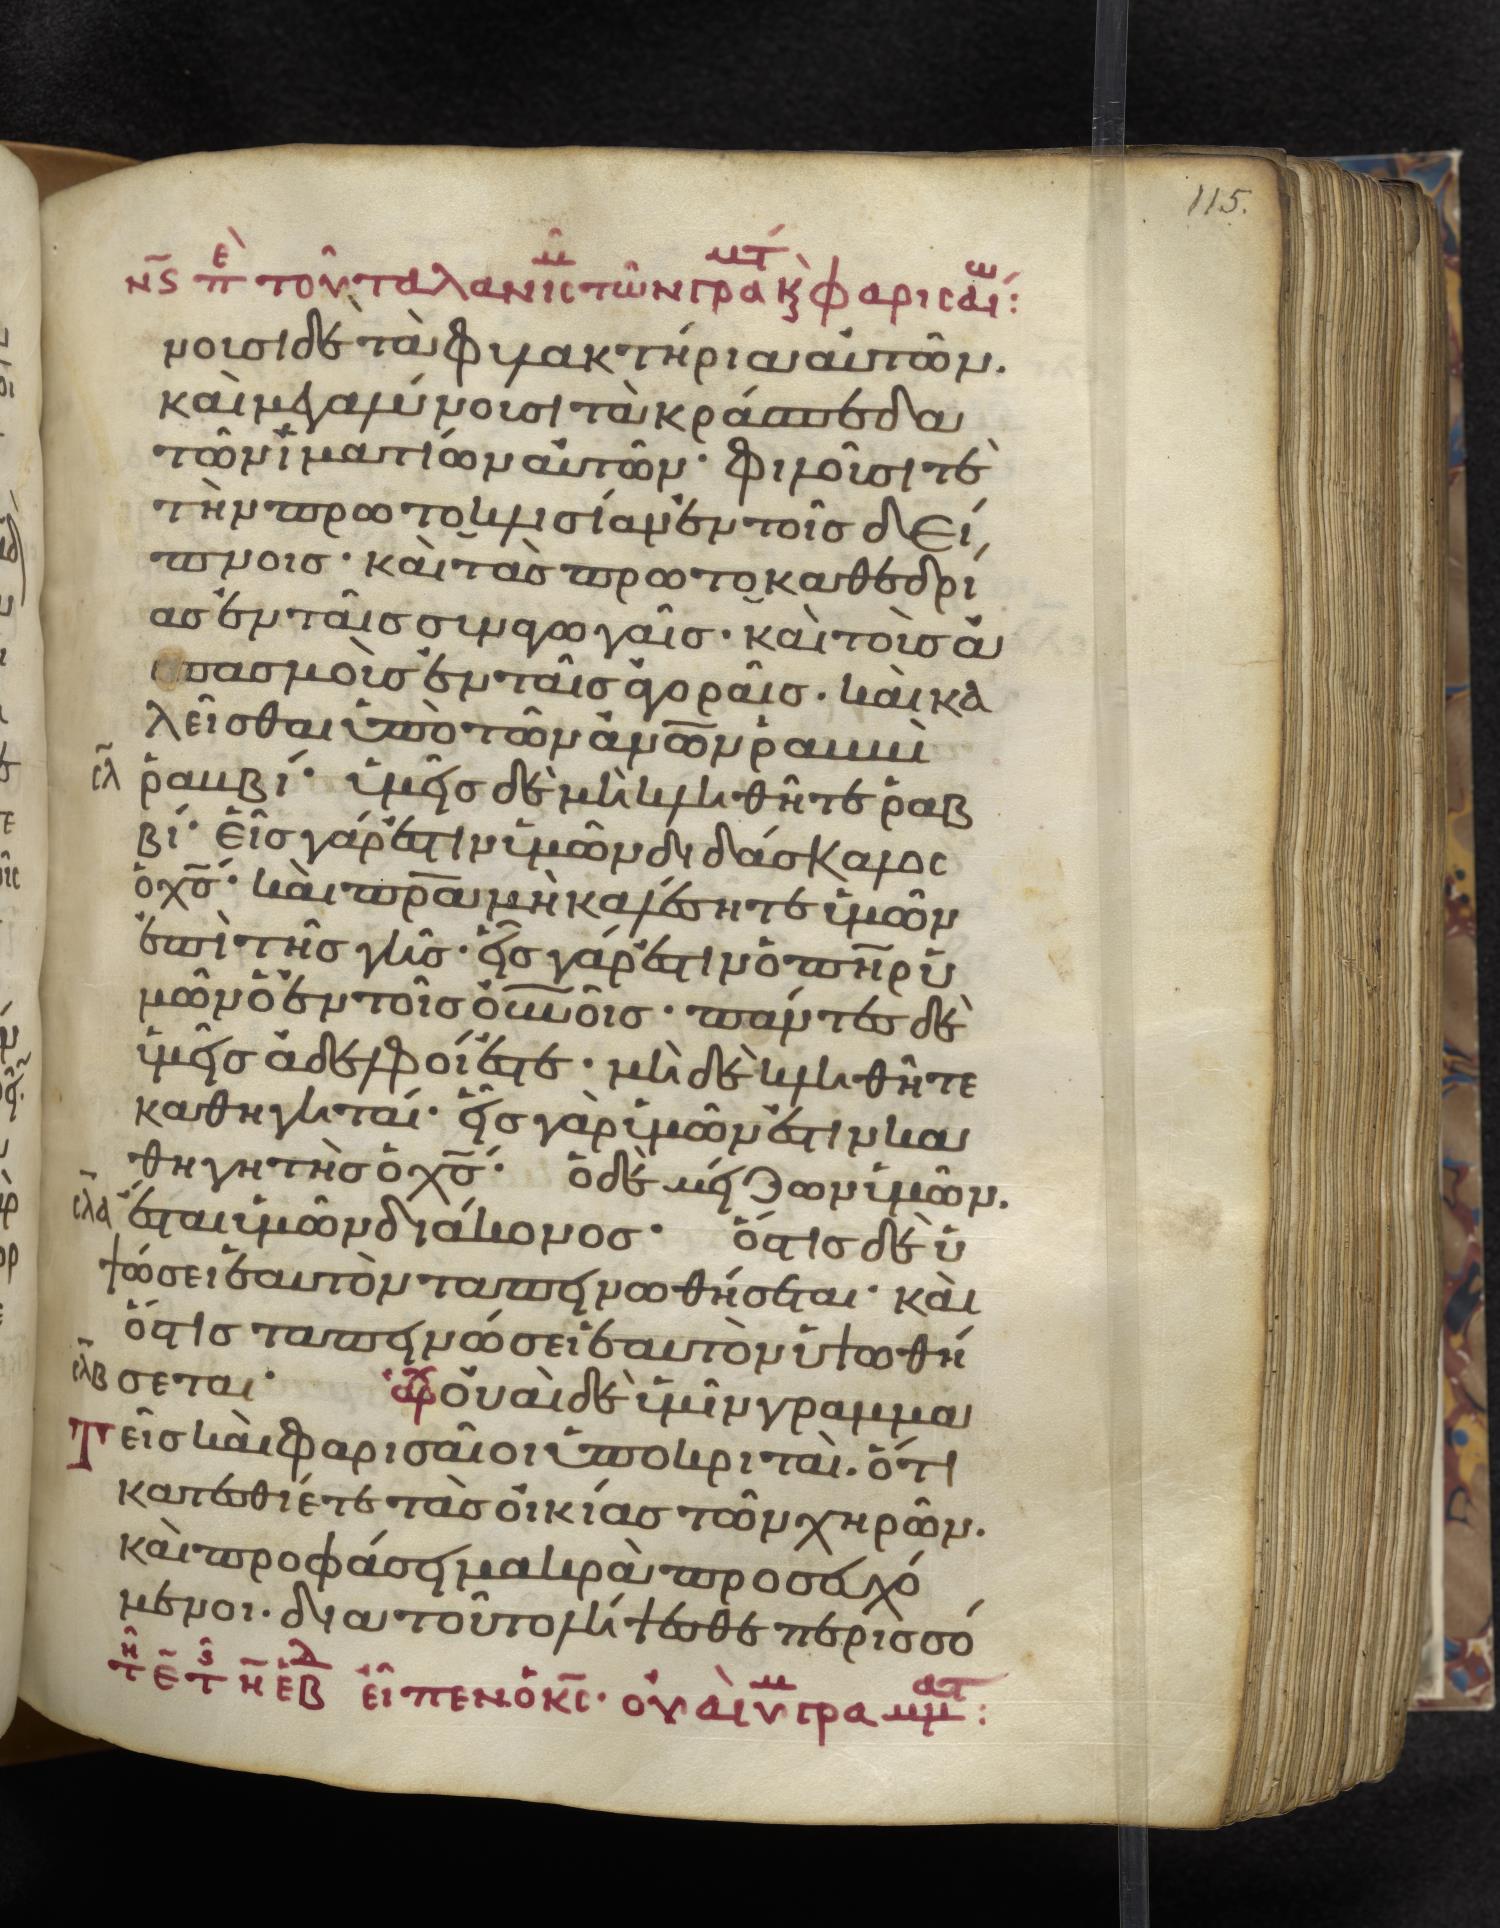 115.
ν̄ϛ πε τοῦ ταλανισμ τῶν γραμμτ κ̀ φαρισαίω:
νουσι δὲ τὰ φυλακτήρια αὐτῶν.
καὶ μεγαλύνουσι τὰ κράσπεδα
τῶν ἱματίων αὐτῶν· φιλοῦσι τὲ
τὴν πρωτοκλησίαν ἐν τοῖς δεί
πνοις· καὶ τὰς πρωτοκαθεδρί
ας ἐν ταῖς συναγωγαῖς· καὶ τοὺς ἀ
σπασμοὺς ἐν ταῖς ἀγοραῖς. καὶ κα
λεῖσθαι ὑπὸ τῶν ἀν̅ω̅ν ῥαββὶ
σ̄κ̄λ ῥαββί· ὑμεῖς δὲ μὴ κληθῆτε ῥαβ
βί· εἷς γάρ ἐστιν ὑμῶν διδάσκαλος
ὁ χ̅ς̅· καὶ π̅ρ̅α μὴ καλέσητε ὑμῶν
ἐπὶ τῆς γῆς· εἷς γάρ ἐστιν ὁ π̅η̅ρ ὑ
μῶν ὁ ἐν τοῖς ο̅υ̅ν̅οῖς· πάντες δὲ
ὑμεῖς ἀδελφοί ἐστε· μὴ δὲ κληθῆτε
καθηγηταί· εἷς γὰρ ὑμῶν ἐστιν κα
θηγητὴς ὁ χ̅ς̅· ὁ δὲ μείζων ὑμῶν.
σ̄λᾱ ἔσται ὑμῶν διάκονος· ὅστις δὲ ὑ
ψώσει ἑαυτὸν ταπεινωθήσεται· καὶ
ὅστις ταπεινώσει ἑαυτὸν ὑψωθή
σ̄λβ σεται· ἀρχ οὐαὶ δὲ ὑμῖν γραμμα
τεῖς καὶ φαρισαῖοι ὑποκριταὶ. ὅτι
κατεσθίετε τὰς οἰκίας τῶν χηρῶν.
καὶ προφάσει μακρὰ προσευχό
μενοι. διατοῦτο λήψεσθε περισσό
τη ε̄ τϛ η̄ ἑβλ εἶπεν ὁ κ̅ς̅· οὐαὶ ὑμ γραμματ: